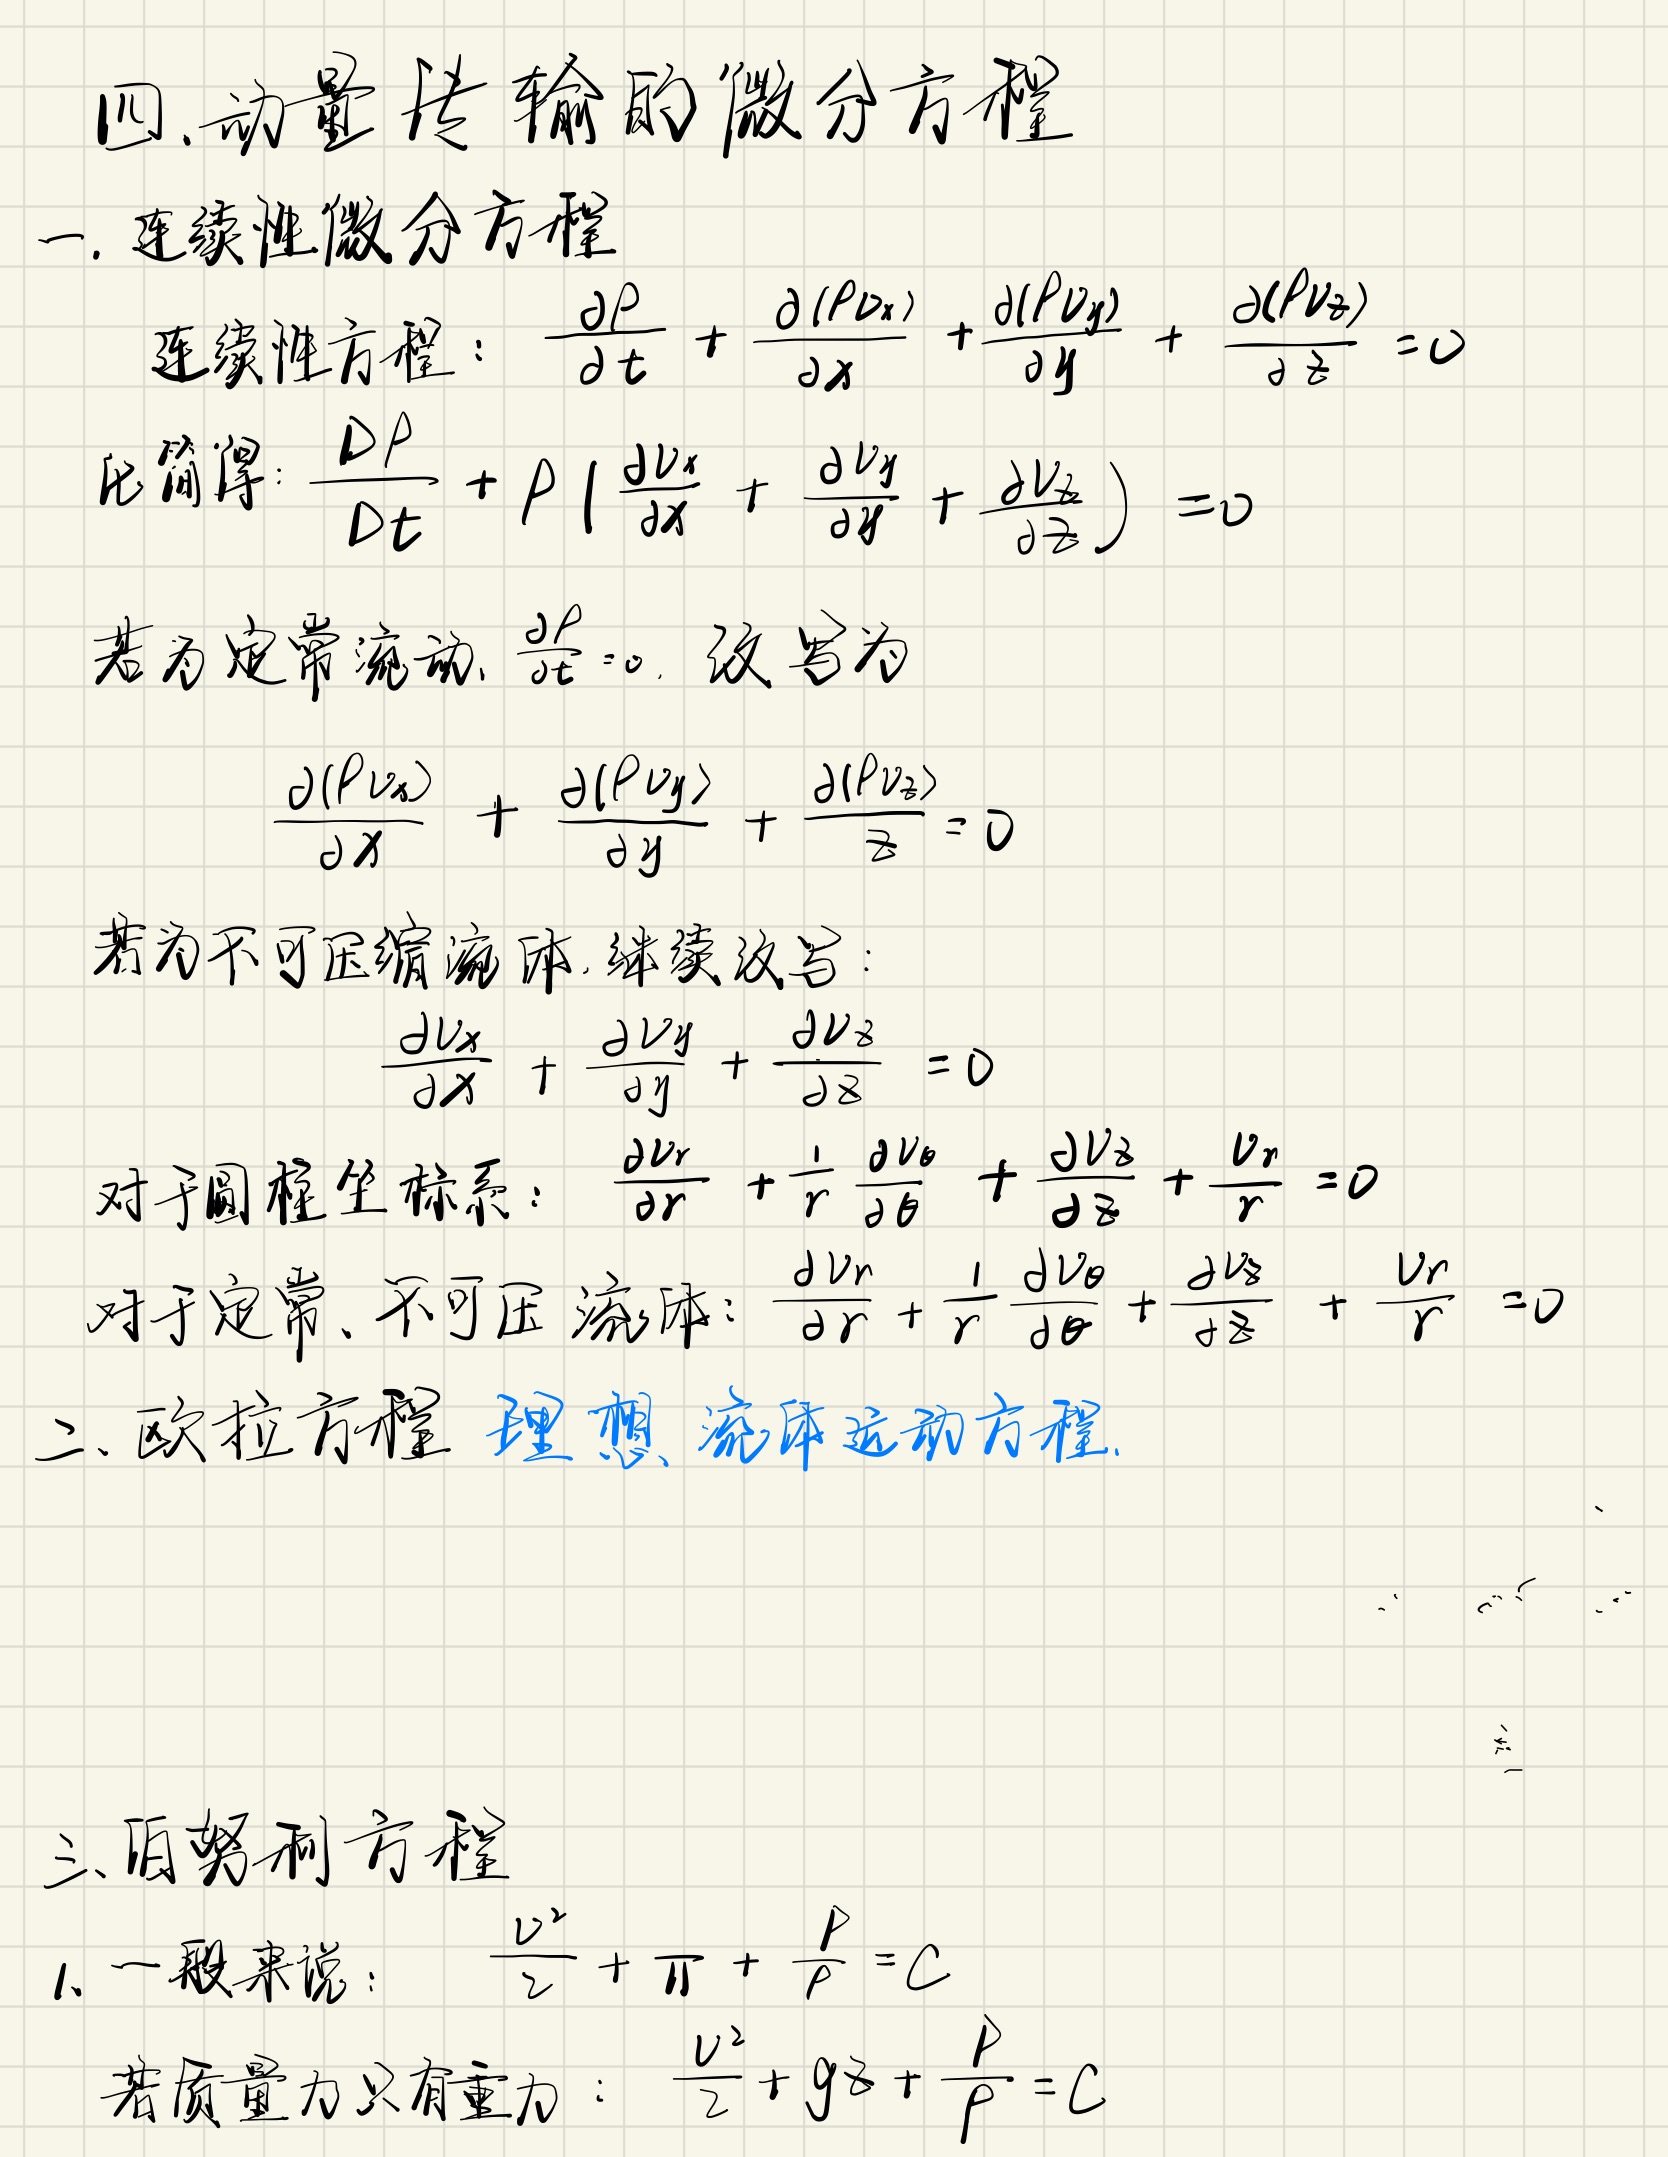 四、动量传输的微分方程
一. 连续性微分方程
连续性方程: ∂ρ/∂t + ∂(ρvx)/∂x + ∂(ρvy)/∂y + ∂(ρvz)/∂z = 0
化简得: Dρ/Dt + ρ(∂vx/∂x + ∂vy/∂y + ∂vz/∂z) = 0
若为定常流动、∂ρ/∂t = 0, 改写为
∂(ρvx)/∂x + ∂(ρvy)/∂y + ∂(ρvz)/z = 0
若为不可压缩流体,继续改写:
∂vx/∂x + ∂vy/∂y + ∂vz/∂z = 0
对于圆柱坐标系: ∂vr/∂r + 1/r ∂vθ/∂θ + ∂vz/∂z + vr/r = 0
对于定常、不可压流体: ∂vr/∂r + 1/r ∂vθ/∂θ + ∂vz/∂z + vr/r = 0
二、欧拉方程 理想流体运动方程.
三、伯努利方程
1、一般来说: v²/2 + π + p/ρ = C
若质量力只有重力: v²/2 + gz + p/ρ = C